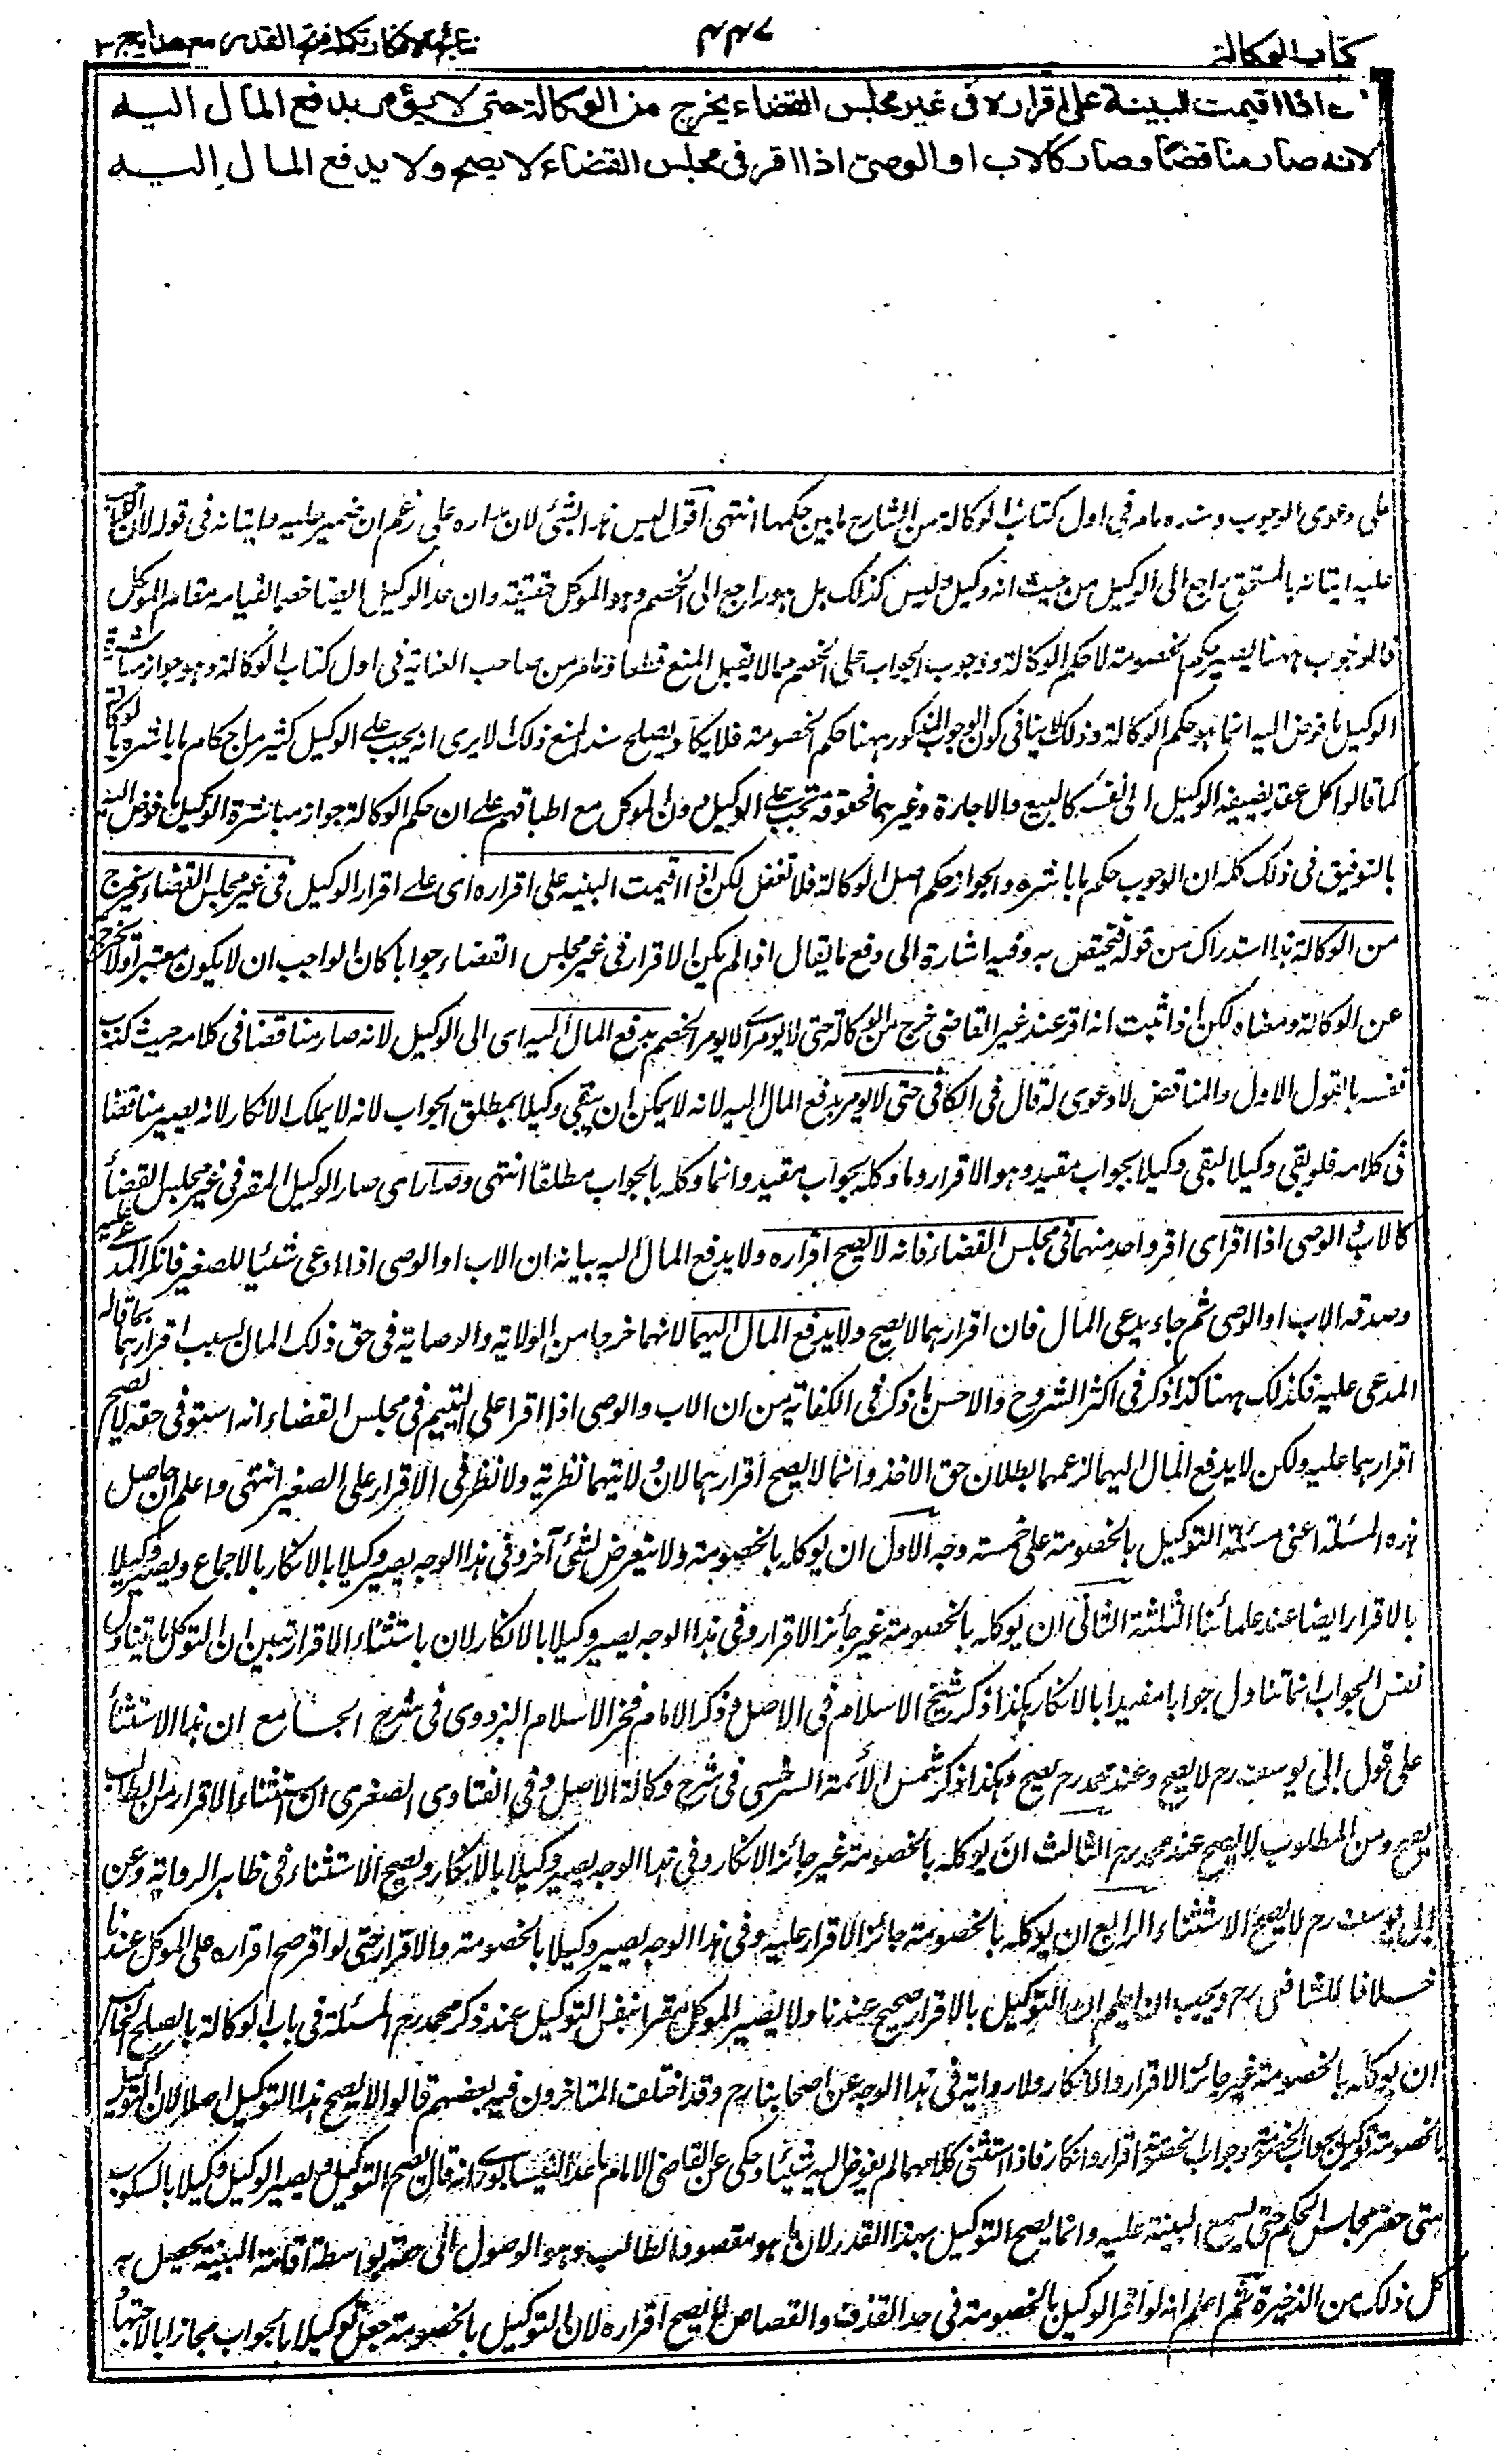 كتاب الوكالة
٤٤٧
نتائج الافكار تكملة فتح القدير مع هدايه ج ٣
اذا اقيمت البينة على اقراره في غير مجلس القضاء يخرج من الوكالة حتى لا يؤمر بدفع المال اليه
لانه صار مناقضا وصار كالاب او الوصي اذا اقر في مجلس القضاء لا يصح ولا يدفع المال اليه
على دعوى الوجوب وسنده ما مر في اول كتاب الوكالة من الشارح ما بين حكمها انتهى اقول ليس هذا بشئ لان مداره على زعم ان ضمير عليه واتيانه في قوله لان الواجب
عليه اتيانه بالمستحق راجع الى الوكيل من حيث انه وكيل وليس كذلك بل هو راجع الى الخصم وهو الموكل حقيقة وان عد الوكيل ايضا خصما لقيامه مقام الموكل
فالوجوب ههنا يصير حكم الخصومة لا حكم الوكالة ووجوب الجواب على الخصم مما لا يقبل المنع قطعا وما مر من صاحب العناية في اول كتاب الوكالة وهو جواز مباشرة
الوكيل ما فوض اليه انما هو حكم الوكالة وذلك لا ينافي كون الوجوب المذكور ههنا حكم الخصومة فلا يكاد يصلح سندا لمنع ذلك الا يرى انه يجب على الوكيل كثير من احكام ما باشره بالوكالة
كما قالوا كل عقد يضيفه الوكيل الى نفسه كالبيع والاجارة وغيرهما فحقوقه تجب على الوكيل دون الموكل مع اطباقهم على ان حكم الوكالة جواز مباشرة الوكيل ما فوض اليه
بالتوفيق في ذلك كله ان الوجوب حكم ما باشره والجواز حكم اصل الوكالة فلا تغفل لكن اذا اقيمت البينة على اقراره اي على اقرار الوكيل في غير مجلس القضاء يخرج
من الوكالة هذا استدراك من قوله فيختص به وفيه اشارة الى دفع ما يقال اذا لم يكن الاقرار في غير مجلس القضاء جوابا كان الواجب ان لا يكون معتبرا ولا يخرج به
عن الوكالة ومعناه لكن اذا ثبت انه اقر عند غير القاضي خرج من الوكالة حتى لا يؤمر اي لا يؤمر الخصم بدفع المال اليه اي الى الوكيل لانه صار مناقضا في كلامه حيث كذب
نفسه بالقول الاول والمناقض لا دعوى له قال في الكافي حتى لا يؤمر بدفع المال اليه لانه لا يمكن ان يبقى وكيلا بمطلق الجواب لانه لا يملك الانكار لانه يصير مناقضا
في كلامه فلو بقي وكيلا لبقي وكيلا بجواب مقيد وهو الاقرار وما وكله بجواب مقيد وانما وكله بالجواب مطلقا انتهى وصار اي صار الوكيل المقر في غير مجلس القضاء
كالاب والوصي اذا اقر اي اقر واحد منهما في مجلس القضاء فانه لا يصح اقراره ولا يدفع المال اليه بيانه ان الاب او الوصي اذا ادعى شيئا للصغير فانكر المدعى عليه
وصدقه الاب او الوصي ثم جاء يدعي المال فان اقرارهما لا يصح ولا يدفع المال اليهما لانهما خرجا من الولاية والوصاية في حق ذلك المال بسبب اقرارهما بما قاله
المدعى عليه فكذلك ههنا كذا ذكر في اكثر الشروح والاحسن ما ذكر في الكفاية من ان الاب والوصي اذا اقرا على اليتيم في مجلس القضاء انه استوفى حقه لا يصح
اقرارهما عليه ولكن لا يدفع المال اليهما لزعمهما بطلان حق الاخذ وانما لا يصح اقرارهما لان ولايتهما نظرية ولا نظر في الاقرار على الصغير انتهى واعلم ان حاصل
هذه المسئلة اعني مسئلة التوكيل بالخصومة على خمسة وجه الاول ان يوكله بالخصومة ولا يتعرض لشئ آخر وفي هذا الوجه يصير وكيلا بالانكار بالاجماع ويصير وكيلا
بالاقرار ايضا عند علمائنا الثلثة الثاني ان يوكله بالخصومة غير جائز الاقرار وفي هذا الوجه يصير وكيلا بالانكار لان باستثناء الاقرار تبين ان التوكيل ما يتناول
نفس الجواب انما تناول جوابا مقيدا بالانكار هكذا ذكر شيخ الاسلام في الاصل وذكر الامام فخر الاسلام البزدوي في شرح الجامع ان هذا الاستثناء
على قول ابي يوسف رح لا يصح وعند محمد رح يصح وهكذا ذكر شمس الأئمة السرخسي في شرح وكالة الاصل وفي الفتاوى الصغرى ان استثناء الاقرار من الطالب
يصح ومن المطلوب لا يصح عند محمد رح الثالث ان يوكله بالخصومة غير جائز الانكار وفي هذا الوجه يصير وكيلا بالانكار ويصح الاستثناء في ظاهر الرواية وعن
ابي يوسف رح لا يصح الاستثناء الرابع ان يوكله بالخصومة جائز الاقرار عليه وفي هذا الوجه يصير وكيلا بالخصومة والاقرار حتى لو اقر صح اقراره على الموكل عندنا
خلافا للشافعي رح ويجب ان يعلم ان التوكيل بالاقرار صحيح عندنا ولا يصير الموكل مقرا بنفس التوكيل عند ذكر محمد رح المسئلة في باب الوكالة بالصلح الخامس
ان يوكله بالخصومة غير جائز الاقرار والانكار ولا رواية في هذا الوجه عن اصحابنا رح وقد اختلف المتاخرون فيه بعضهم قالوا لا يصح هذا التوكيل اصلا لان التوكيل
بالخصومة توكيل بجواب الخصومة وجواب الخصومة اقرار وانكار فاذا استثنى كلاهما لم يفوض اليه شيئا وحكى عن القاضي الامام صاعد النيسابوري انه قال يصح التوكيل ويصير الوكيل وكيلا بالسكوت
متى حضر مجلس الحكم حتى يسمع البينة عليه وانما يصح التوكيل بهذا القدر لان ما هو مقصود الطالب وهو الوصول الى حقه بواسطة اقامة البينة يحصل به
كل ذلك من الذخيرة ثم اعلم انه لو اقر الوكيل بالخصومة في حد القذف والقصاص لا يصح اقراره لان التوكيل بالخصومة جعل توكيلا بالجواب مجازا بالاجتهاد